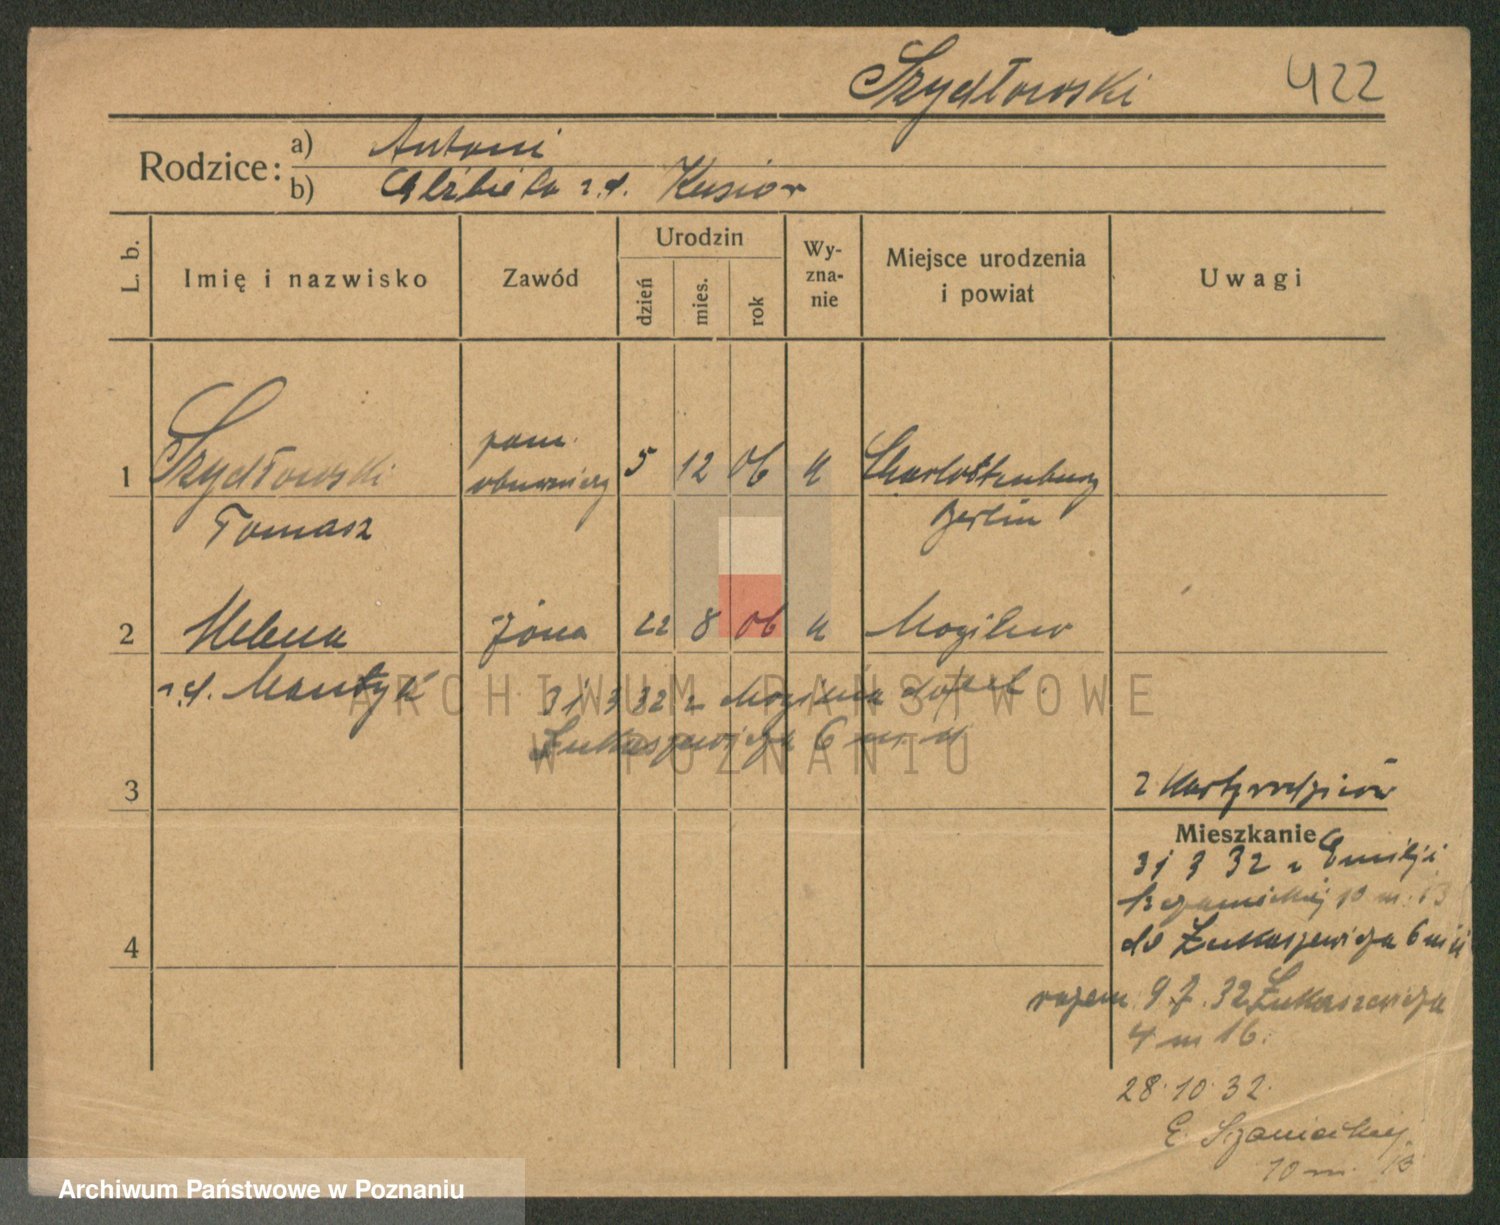 Szydłowski 422
Rodzice: a) Antoni
b) Elżbieta z d. Kusior
L. b.
Imię i nazwisko
Zawód
Urodzin
dzień
mies.
rok
Wy-
zna-
nie
Miejsce urodzenia
i powiat
Uwagi
1 Szydłowski pom. 5 12 06 Charlottenburg
Tomasz Berlin
2 Helena żona 22 8 06 Mogilno
z d. Mantyk
31 3 32 z Mogilna
Łukaszewicza 6 m. 11
3
z Karty rodziców
Mieszkanie
31 3 32 z Emilji
Sczanieckiej 10 m. 13
4
do Łukaszewicza 6 m 11
razem 9.7.32 Łukaszewicza
4 m 16.
28.10.32.
E. Sczanieckiej
10 m. 13
ARCHIWUM PAŃSTWOWE
W POZNANIU
Archiwum Państwowe w Poznaniu